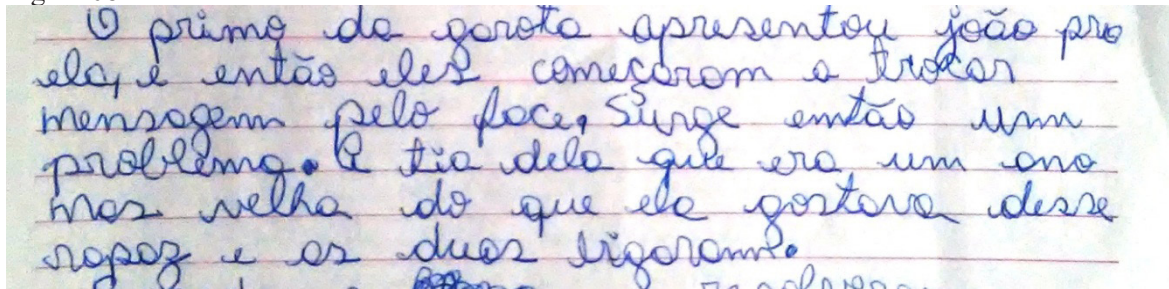 O primo da garota apresentou joão pra
ela, e então eles começaram a trocar
mensagem pelo face, Surge então um
problema. A tia dela que era um ano
mas velha do que ela gostava desse
rapaz e as duas brigaram.